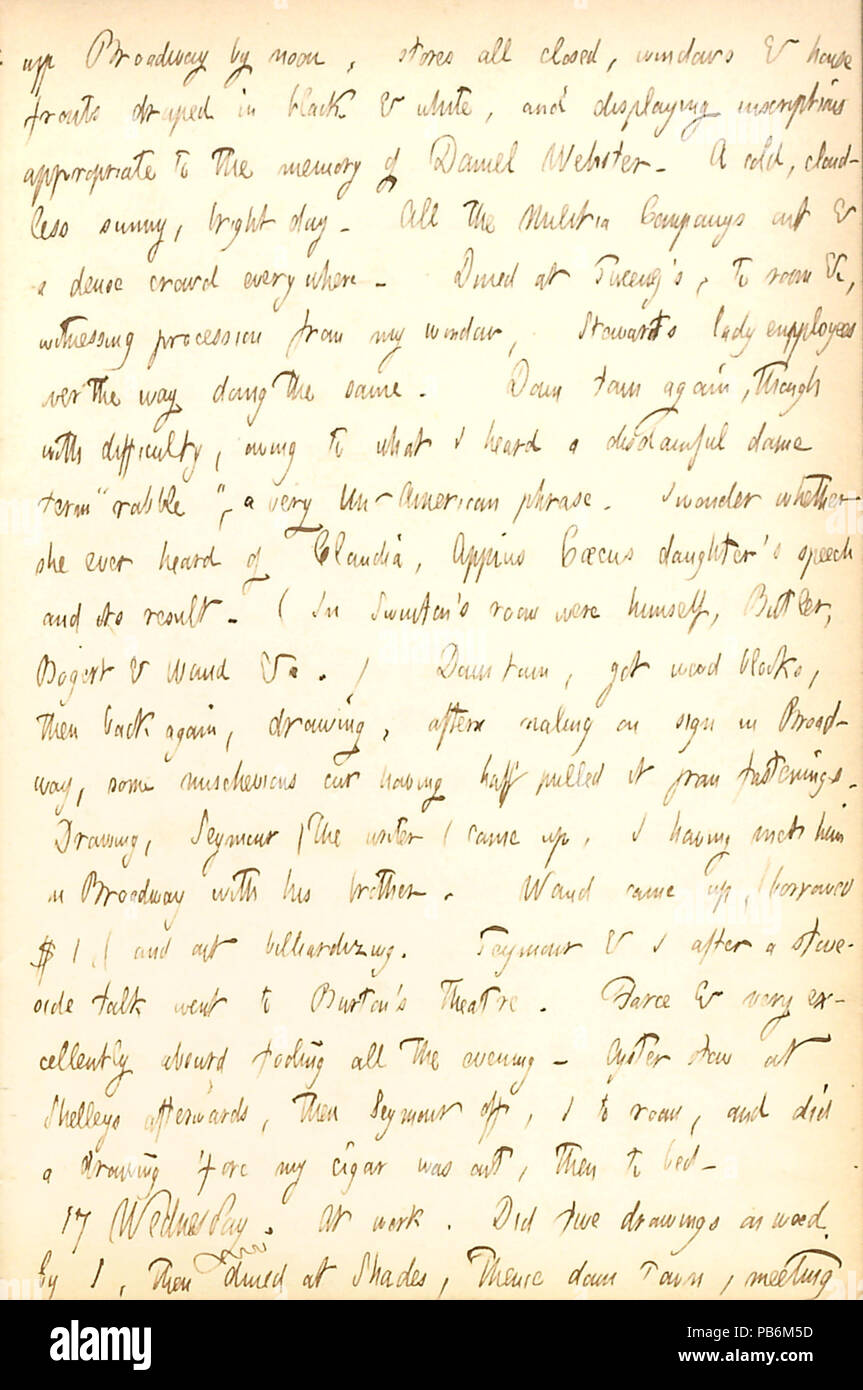 up Broadway by noon, stores all closed, windows & house
fronts draped in black & white, and displaying inscriptions
appropriate to the memory of Daniel Webster. A cold, cloud-
less sunny, bright day. All the Militia Companys out &
a dense crowd every where. Dined at Sweeny's, to room &c,
witnessing procession from my window, Stewart's lady employees
over the way doing the same. Down town again, though
with difficulty, owing to what I heard a disdainful dame
term "rabble", a very Un-American phrase. I wonder whether
she ever heard of Claudia, Appius Cæcus daughter's speech
and its result. ( In Swinton's room were himself, Butler,
Bogert & Waud &c. ) Down town, got wood blocks,
then back again, drawing, after nailing on sign in Broad-
way, some mischevious cur having half pulled it from fastenings.
Drawing, Seymour (the writer) came up, I having met him
in Broadway with his brother. Waud came up, (borrowed
$ 1,) and out billiardizing. Seymour & I after a stove-
side talk went to Burton's Theatre. Farce & very ex-
cellently absurd fooling all the evening - Oyster stew at
Shelleys afterwards, then Seymour off, I to room, and did
a drawing 'fore my cigar was out, then to bed -
17 Wednesday. At work. Did two drawings on wood
by 1, then dined at Shades, thence down town, meeting
alamy
Image ID: PB6M5D
www.alamy.com